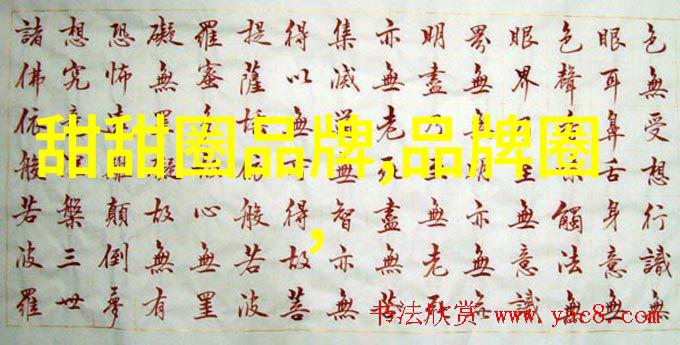 色無受想行識無
眼耳鼻舌身意無
色聲觸法無
眼界至無意識
界無無明亦無無
明盡乃至無老死
亦無老死盡無苦
集滅道無智亦無
得以無得故菩
提薩埵依般若波
羅蜜心無罣
礙無罣礙故無有
恐怖遠離顛倒夢
想究槃三世
諸佛依般若波羅
甜甜圈品牌,品牌圈
,
书法欣赏 www.yac8.com